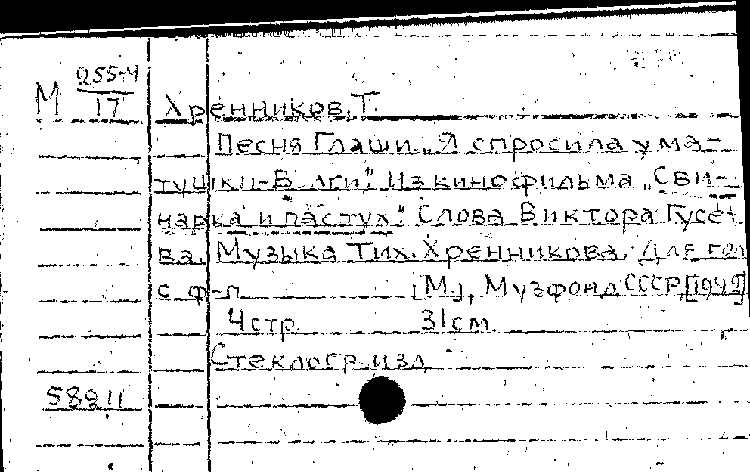 М 255-4/17
Хренников, Т.
Песня Глаши „Я спросила у ма-
тушки-Волги". Из кинофильма „Сви-
нарка и пастух". Слова Виктора Гусе-
ва. Музыка Тих. Хренникова. Для гол
с ф-п [М.], Музфонд СССР, [1942]
4 стр. 31 см.
Стеклогр. изд.
58811